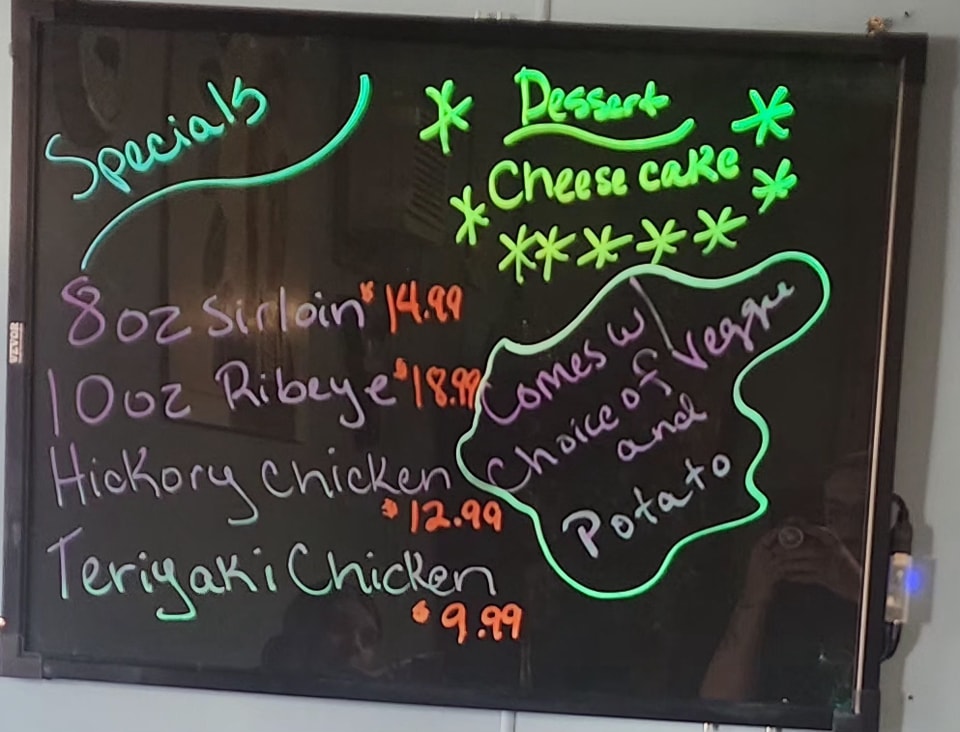 Specials
8oz Sirloin $14.99
10oz Ribeye $18.99
Hickory Chicken
$12.99
Teriyaki Chicken
$9.99
* Dessert *
* Cheese cake *
*****
Comes w/
Choice of Veggie
and
Potato
VEVOR